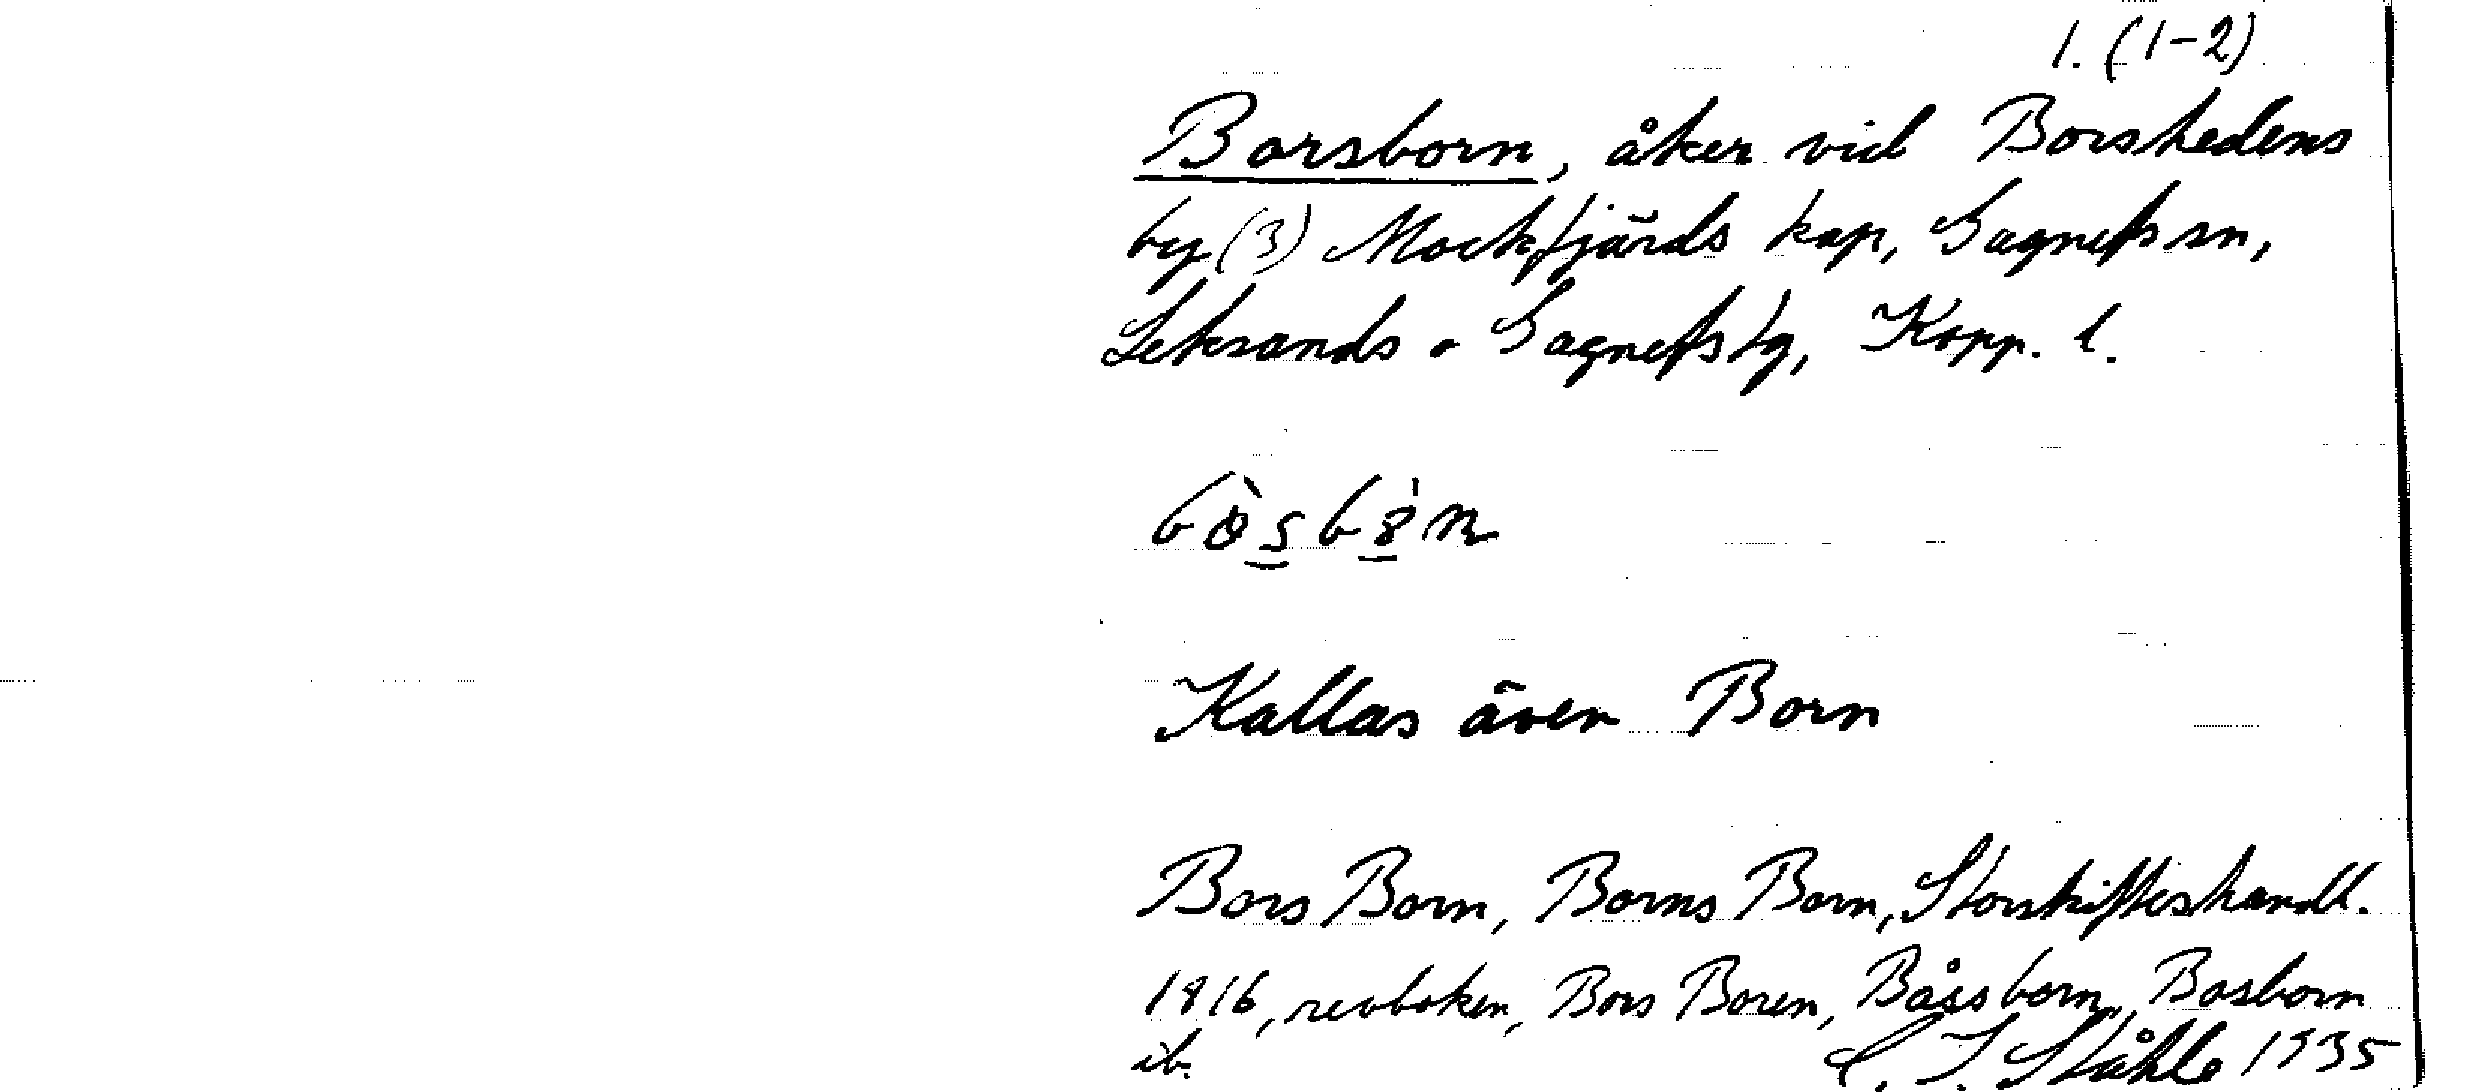 1. (1-2)
Borsborn, åker vid Borshedens
by (3) Mockfjärds kap, Gagnefs sn,
Leksands o Gagnefs tg, Kopp. l.
Kallas även Born
Bors Born, Borns Born, Storskifteshandl.
1816, revboken, Bors Boren, Båssborn, Bosborn
ib. C. I. Ståhle 1935